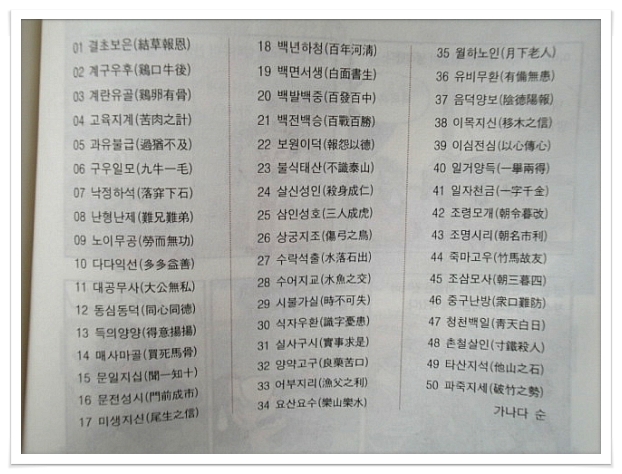 01 결초보은(結草報恩)
02 계구우후(鷄口牛後)
03 계란유골(鷄卵有骨)
04 고육지계(苦肉之計)
05 과유불급(過猶不及)
06 구우일모(九牛一毛)
07 낙정하석(落穽下石)
08 난형난제(難兄難弟)
09 노이무공(勞而無功)
10 다다익선(多多益善)
11 대공무사(大公無私)
12 동심동덕(同心同德)
13 득의양양(得意揚揚)
14 매사마골(買死馬骨)
15 문일지십(聞一知十)
16 문전성시(門前成市)
17 미생지신(尾生之信)
18 백년하청(百年河淸)
19 백면서생(白面書生)
20 백발백중(百發百中)
21 백전백승(百戰百勝)
22 보원이덕(報怨以德)
23 불식태산(不識泰山)
24 살신성인(殺身成仁)
25 삼인성호(三人成虎)
26 상궁지조(傷弓之鳥)
27 수락석출(水落石出)
28 수어지교(水魚之交)
29 시불가실(時不可失)
30 식자우환(識字憂患)
31 실사구시(實事求是)
32 양약고구(良藥苦口)
33 어부지리(漁父之利)
34 요산요수(樂山樂水)
35 월하노인(月下老人)
36 유비무환(有備無患)
37 음덕양보(陰德陽報)
38 이목지신(移木之信)
39 이심전심(以心傳心)
40 일거양득(一擧兩得)
41 일자천금(一字千金)
42 조령모개(朝令暮改)
43 조명시리(朝名市利)
44 죽마고우(竹馬故友)
45 조삼모사(朝三暮四)
46 중구난방(衆口難防)
47 청천백일(靑天白日)
48 촌철살인(寸鐵殺人)
49 타산지석(他山之石)
50 파죽지세(破竹之勢)
가나다 순